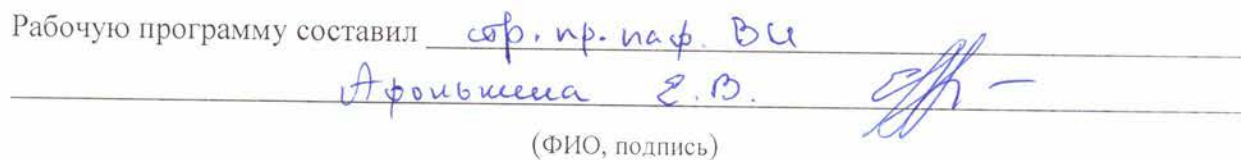 Рабочую программу составил ст. пр. каф. ВИ
Афонькина Е.В.
(ФИО, подпись)